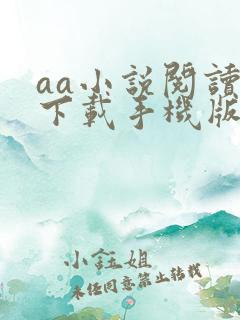 aa小說閱讀
下載手機版
小鈺姐
未任同意禁止轉載